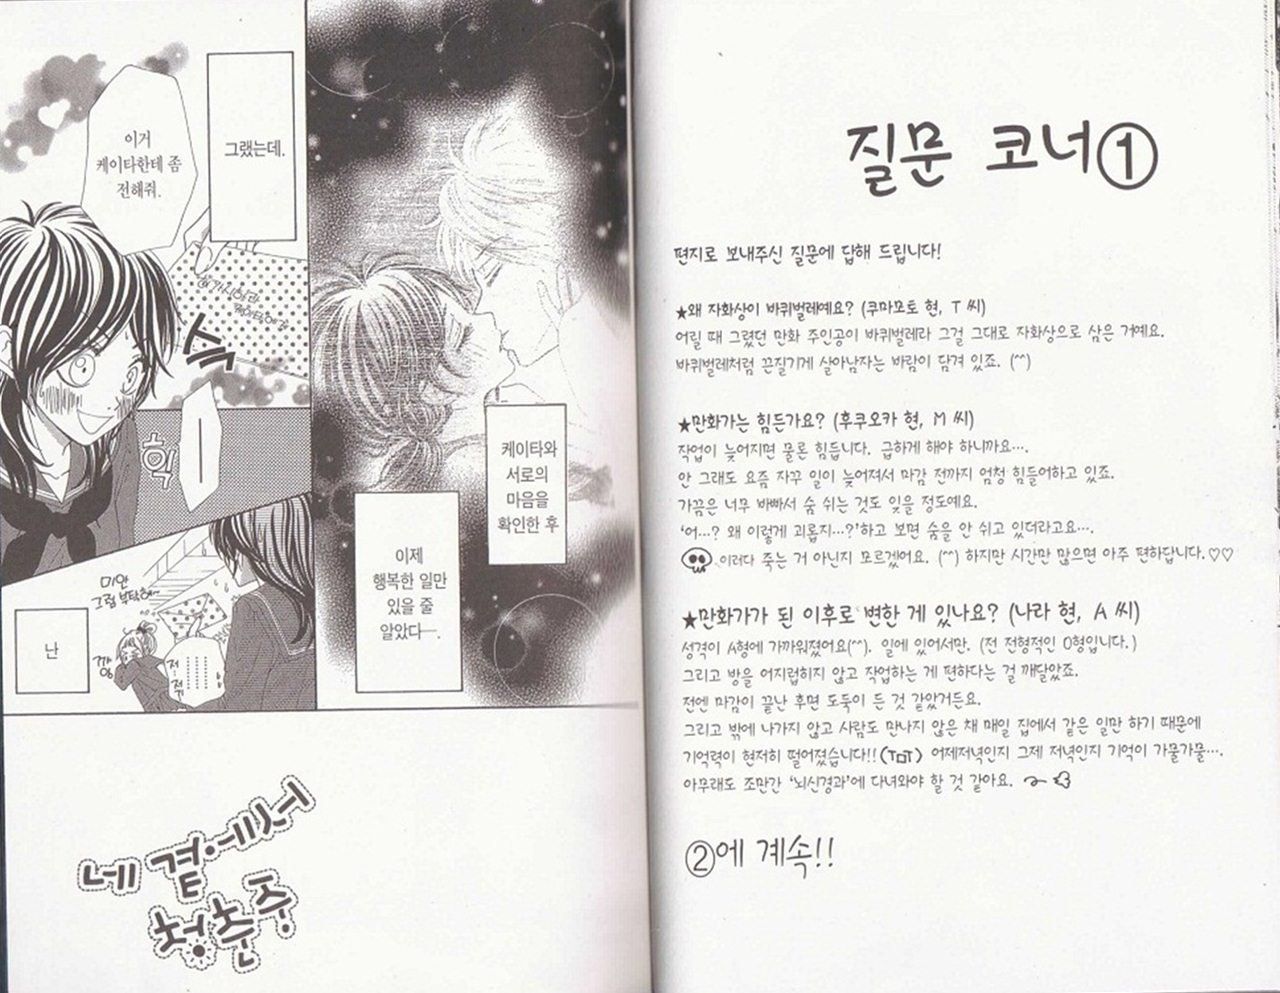 케이타와
서로의
마음을
확인한 후
이제
행복한 일만
있을 줄
알았다—.
그랬는데.
이거
케이타한테 좀
전해줘.
스윽
헉
미안
그럼 부탁해~
꺄아
저…저기
난
네 곁에서
청춘 중
질문 코너①
편지로 보내주신 질문에 답해 드립니다!
★왜 자화상이 바퀴벌레예요? (쿠마모토 현, T 씨)
어릴 때 그렸던 만화 주인공이 바퀴벌레라 그걸 그대로 자화상으로 삼은 거예요.
바퀴벌레처럼 끈질기게 살아남자는 바람이 담겨 있죠. (^^)
★만화가는 힘든가요? (후쿠오카 현, M 씨)
작업이 늦어지면 물론 힘듭니다. 급하게 해야 하니까요….
안 그래도 요즘 자꾸 일이 늦어져서 마감 전까지 엄청 힘들어하고 있죠.
가끔은 너무 바빠서 숨 쉬는 것도 잊을 정도예요.
‘어…? 왜 이렇게 괴롭지…?’하고 보면 숨을 안 쉬고 있더라고요….
이러다 죽는 거 아닌지 모르겠어요. (^^) 하지만 시간만 많으면 아주 편하답니다.♡♡
★만화가가 된 이후로 변한 게 있나요? (나라 현, A 씨)
성격이 A형에 가까워졌어요(^^). 일에 있어서만. (전 전형적인 O형입니다.)
그리고 방을 어지럽히지 않고 작업하는 게 편하다는 걸 깨달았죠.
전엔 마감이 끝난 후면 도둑이 든 것 같았거든요.
그리고 밖에 나가지 않고 사람도 만나지 않은 채 매일 집에서 같은 일만 하기 때문에
기억력이 현저히 떨어졌습니다!! (T□T) 어제저녁인지 그제 저녁인지 기억이 가물가물….
아무래도 조만간 ‘뇌신경과’에 다녀와야 할 것 같아요.
②에 계속!!